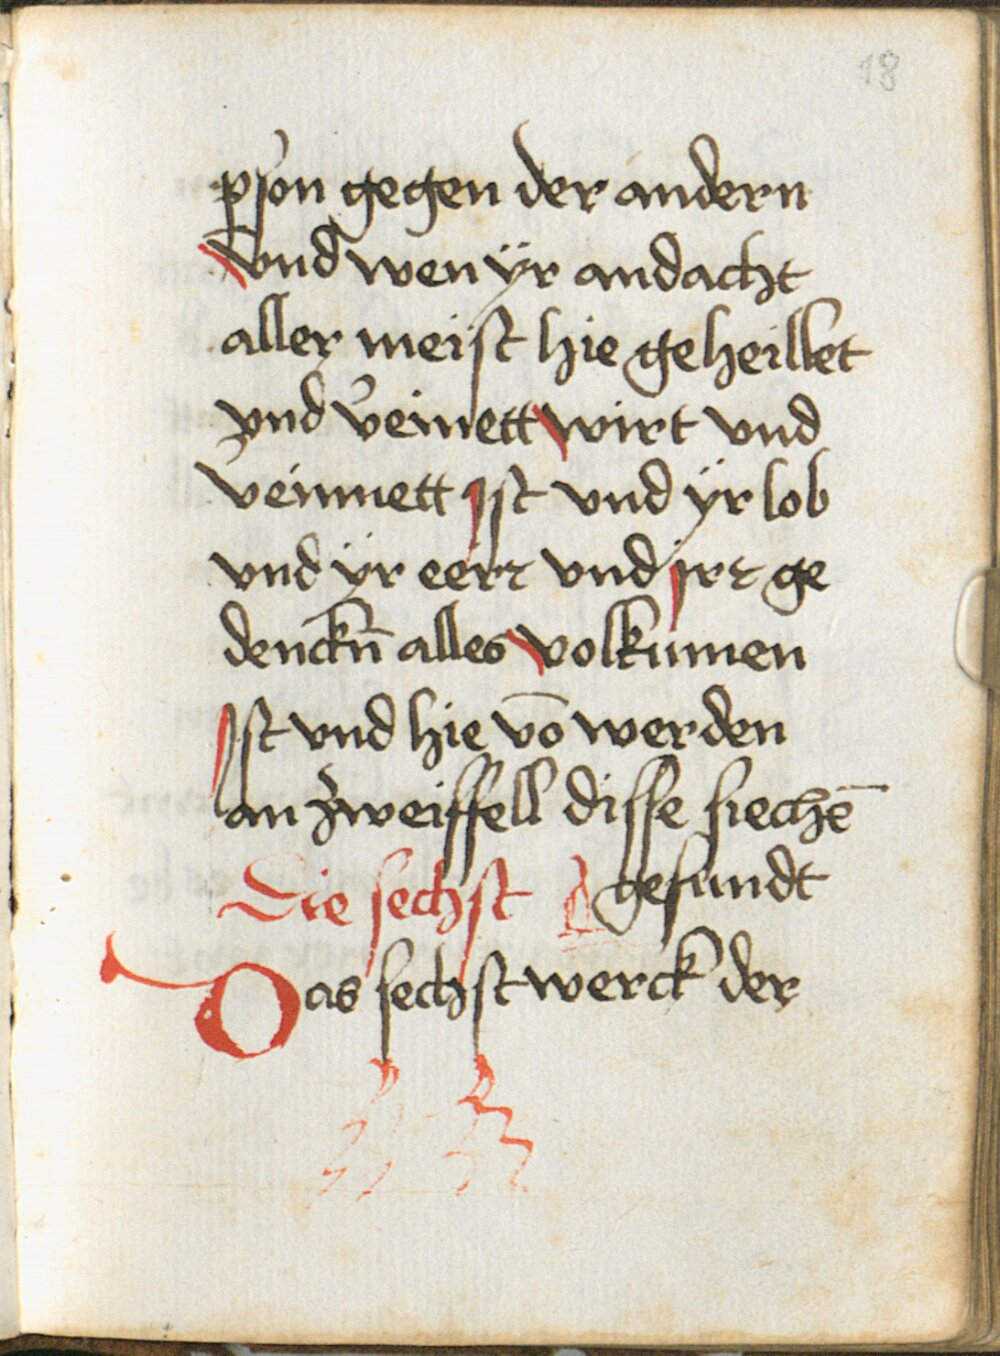 18
pson gegen der andern
vnd wen ÿr andacht
aller meist hie geheillet
vnd v̾einett wirt vnd
v̾einnett Ist vnd ÿr lob
vnd ÿr eer vnd ir ge
denckn̄ alles volkumen
Ist vnd hie vō werden
an zweiffell disse siechē
gesundt
Die sechst
Das sechst werck der